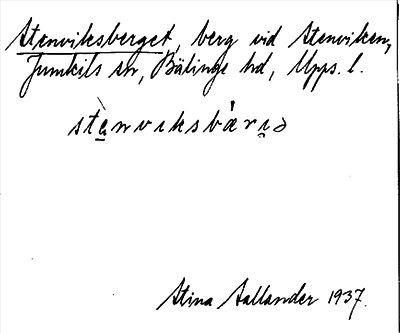 Stenviksberget, berg vid Stenviken,
Jumkils sn, Bälinge hd, Upps. l.
Stina Sallander 1937.